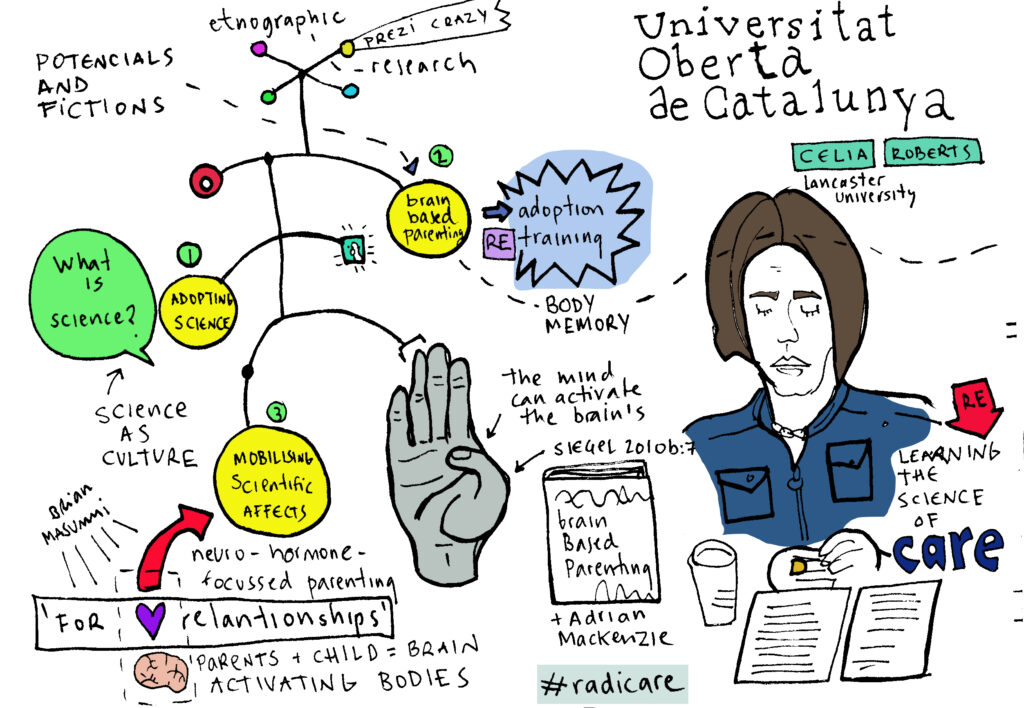 etnographic
PREZI CRAZY
research
POTENCIALS
AND
FICTIONS
Universitat
Oberta
de Catalunya
CELIA ROBERTS
Lancaster
University
2
brain
based
parenting
adoption
RE training
BODY
MEMORY
1
What
is
science?
ADOPTING
SCIENCE
SCIENCE
AS
CULTURE
the mind
can activate
the brain's
SIEGEL 2010b:7
3
MOBILISING
Scientific
AFFECTS
BRIAN
MASUMMI
neuro-hormone-
focussed parenting
'FOR relantionships'
PARENTS + CHILD = BRAIN
ACTIVATING BODIES
brain
Based
Parenting
+ Adrian
Mackenzie
#radicare
RE
LEARNING
THE
SCIENCE
OF
care